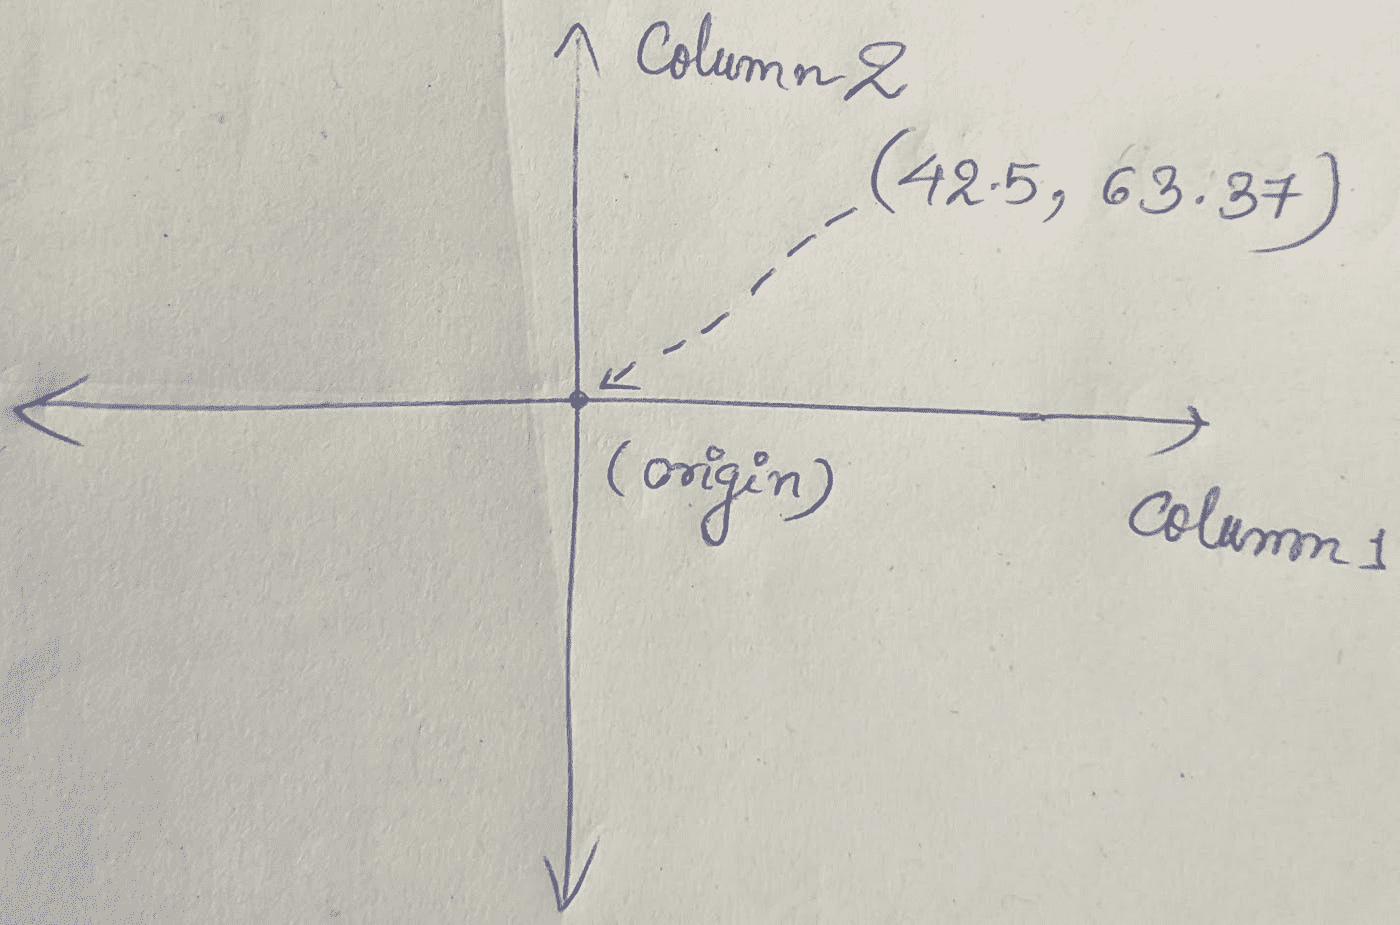 Column 2
(42.5, 63.37)
(origin)
Column 1